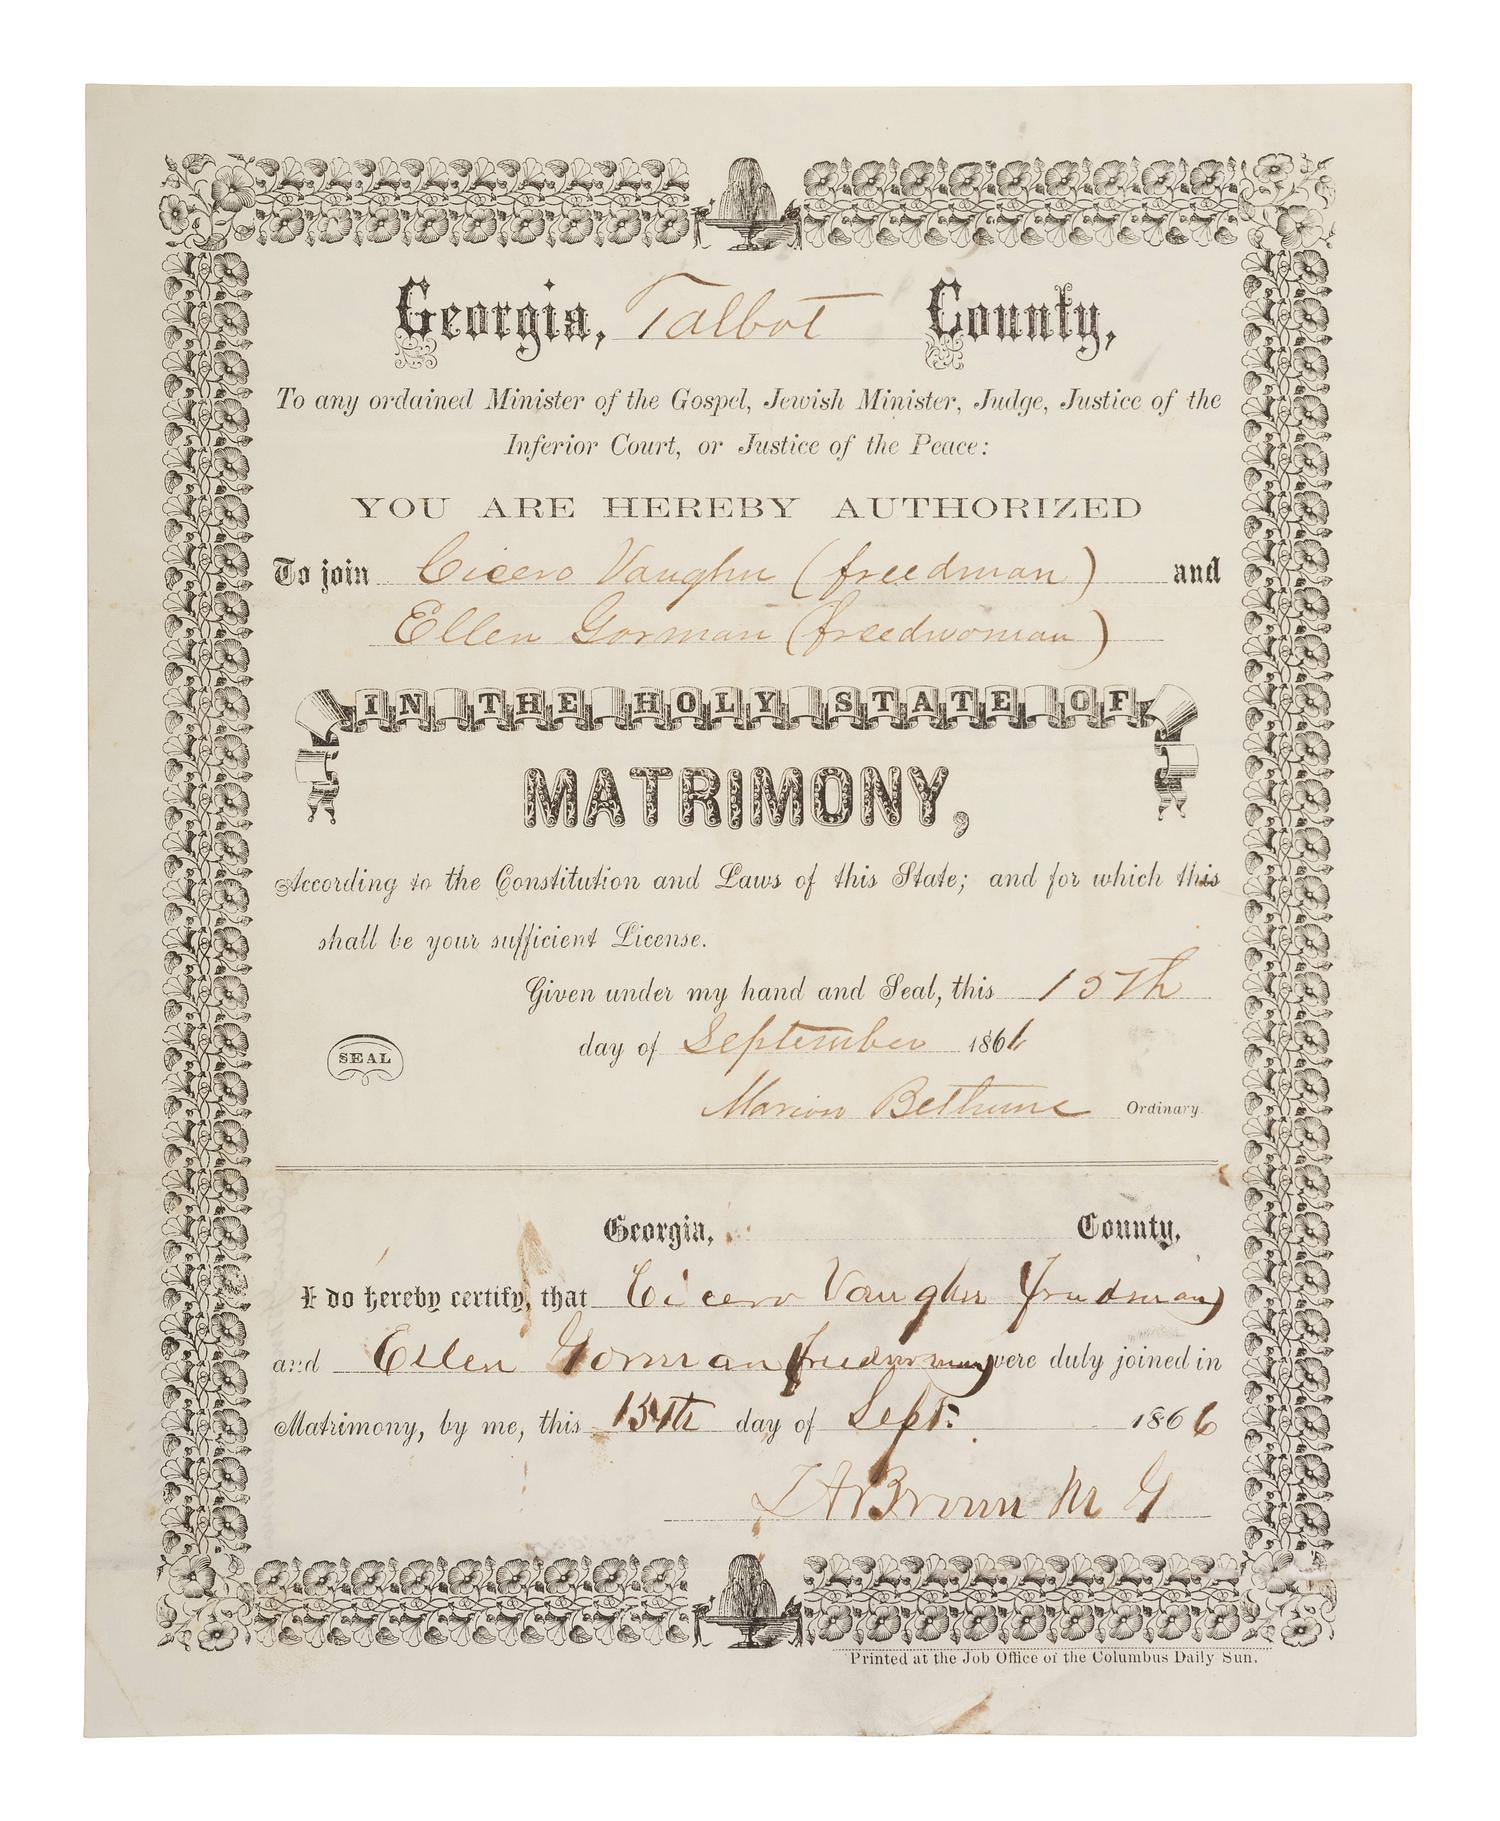 Georgia, Talbot County,
To any ordained Minister of the Gospel, Jewish Minister, Judge, Justice of the
Inferior Court, or Justice of the Peace:
YOU ARE HEREBY AUTHORIZED
To join Cicero Vaughn (freedman) and
Ellen Gorman (freedwoman)
IN THE HOLY STATE OF
MATRIMONY,
According to the Constitution and Laws of this State; and for which this
shall be your sufficient License.
Given under my hand and Seal, this 15th
SEAL
day of September 1866
Marion Bethune Ordinary.
Georgia, County,
I do hereby certify, that Cicero Vaughn (freedman)
and Ellen Gorman were duly joined in
Matrimony, by me, this 15th day of Sept. 1866
Brown M G
Printed at the Job Office of the Columbus Daily Sun.